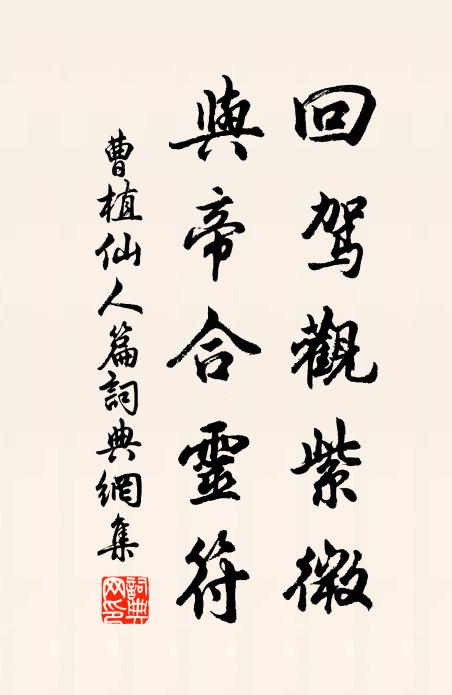 回駕觀紫微
與帝合靈符
曹植仙人篇詞典網集
詞典網印